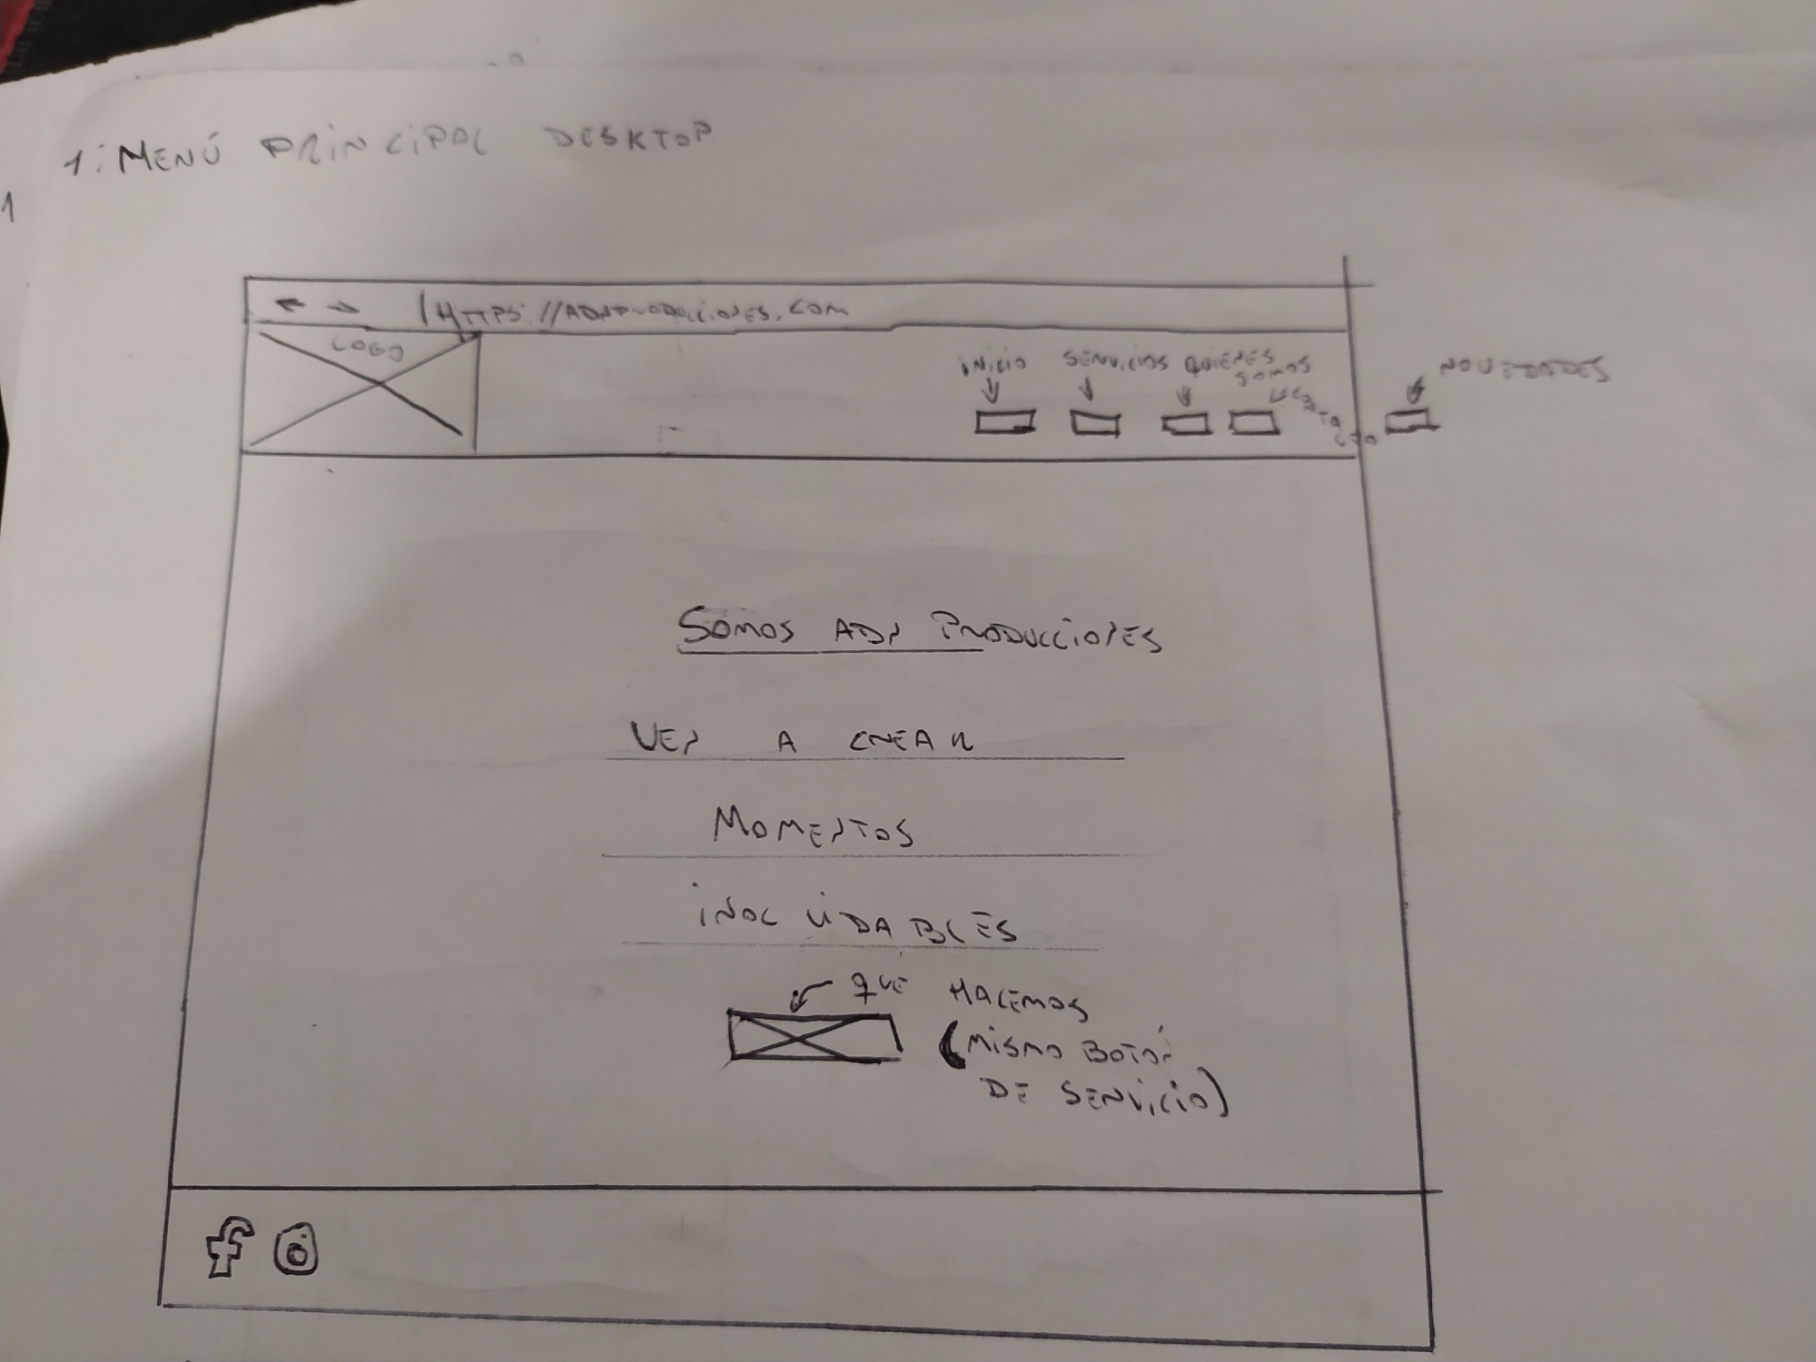 1: MENÚ PRINCIPAL DESKTOP
1
HTTPS://ADNPRODUCCIONES.COM
LOGO
INICIO
SERVICIOS
QUIENES
SOMOS
NOVEDADES
SOMOS ADN PRODUCCIONES
VEN A CREAR
MOMENTOS
INOLVIDABLES
QUE HACEMOS
(MISMO BOTÓN
DE SERVICIO)
f